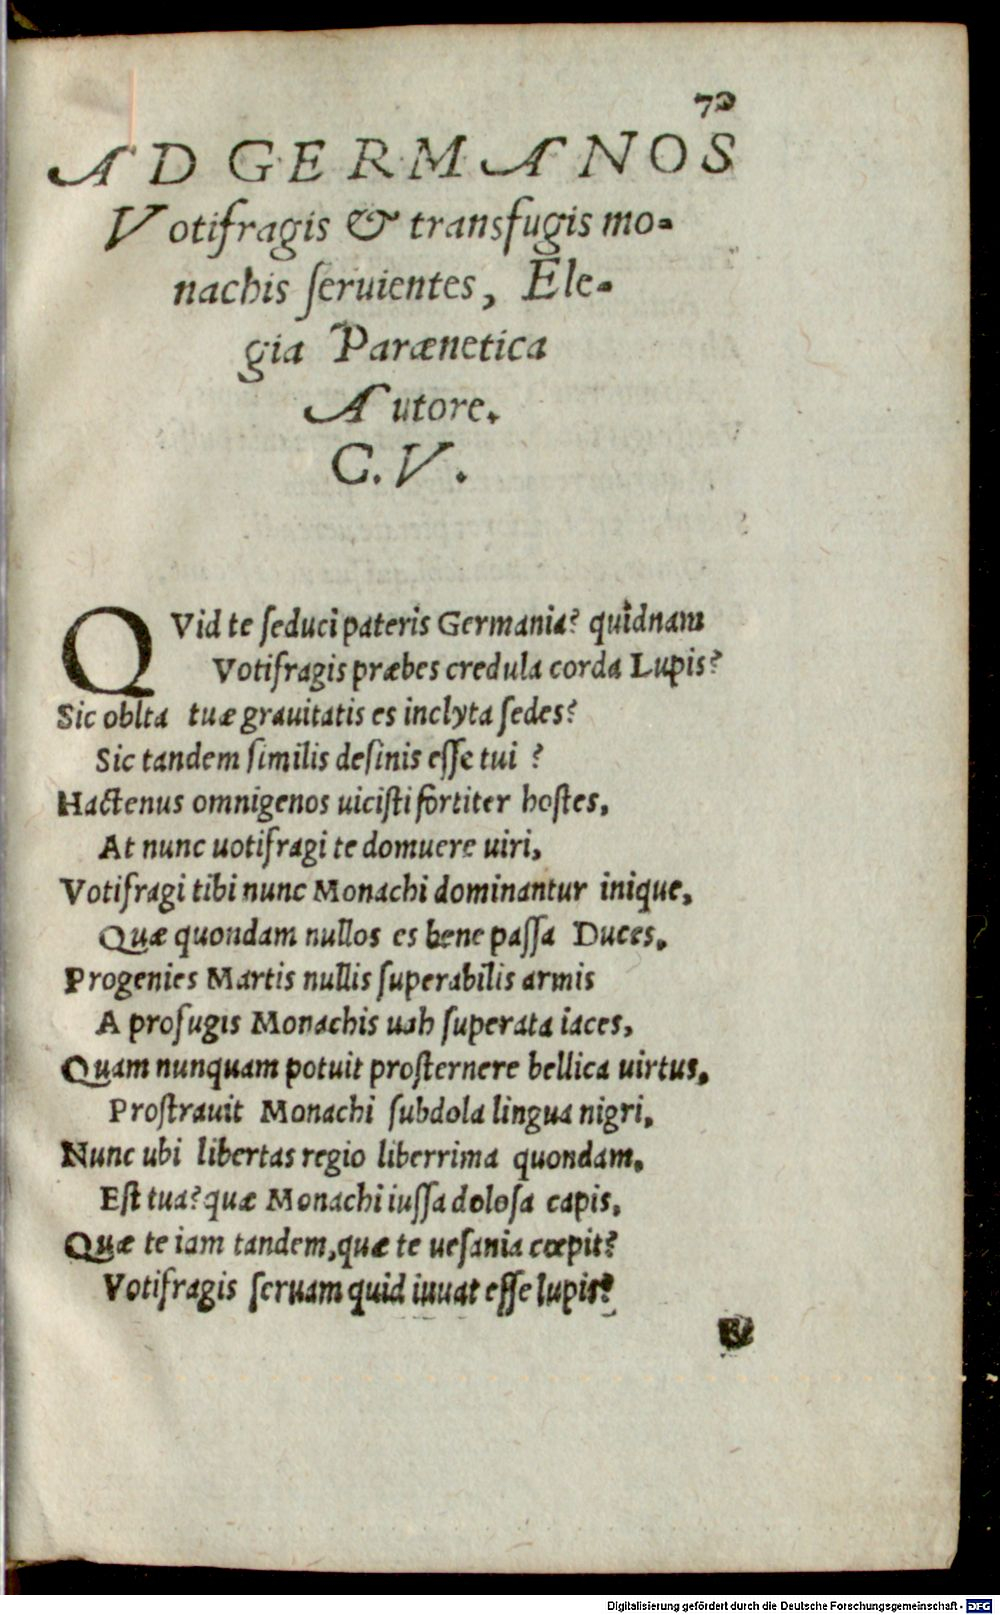 72
AD GERMANOS
Votifragis & transfugis mo-
nachis ſeruientes, Ele-
gia Parænetica
Autore.
C.V.
QVid te ſeduci pateris Germania? quidnam
Votifragis præbes credula corda Lupis?
Sic oblta tuæ grauitatis es inclyta ſedes?
Sic tandem ſimilis deſinis eſſe tui ?
Hactenus omnigenos uiciſti fortiter hoſtes,
At nunc uotifragi te domuere uiri,
Votifragi tibi nunc Monachi dominantur inique,
Quæ quondam nullos es bene paſſa Duces.
Progenies Martis nullis ſuperabilis armis
A profugis Monachis uah ſuperata iaces,
Quam nunquam potuit proſternere bellica uirtus,
Proſtrauit Monachi ſubdola lingua nigri,
Nunc ubi libertas regio liberrima quondam,
Eſt tua? quæ Monachi iuſſa doloſa capis,
Quæ te iam tandem, quæ te ueſania cœpit?
Votifragis ſeruam quid iuuat eſſe lupis?
Digitalisierung gefördert durch die Deutsche Forschungsgemeinschaft - DFG